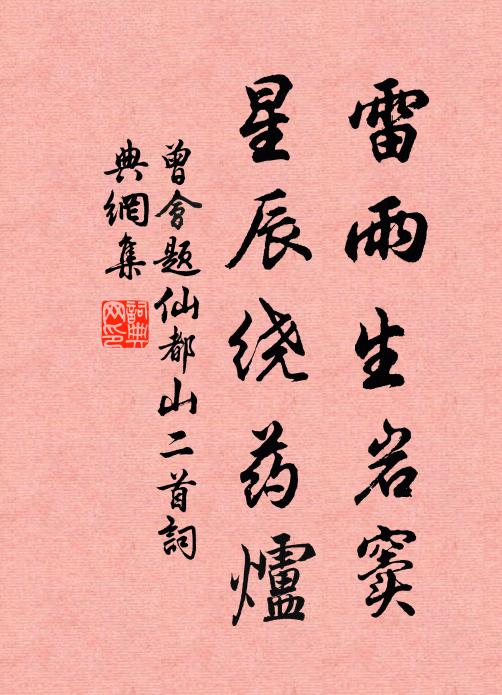 雷雨生岩窦
星辰绕药爐
曾會题仙都山二首詞
典網集
詞典
网印